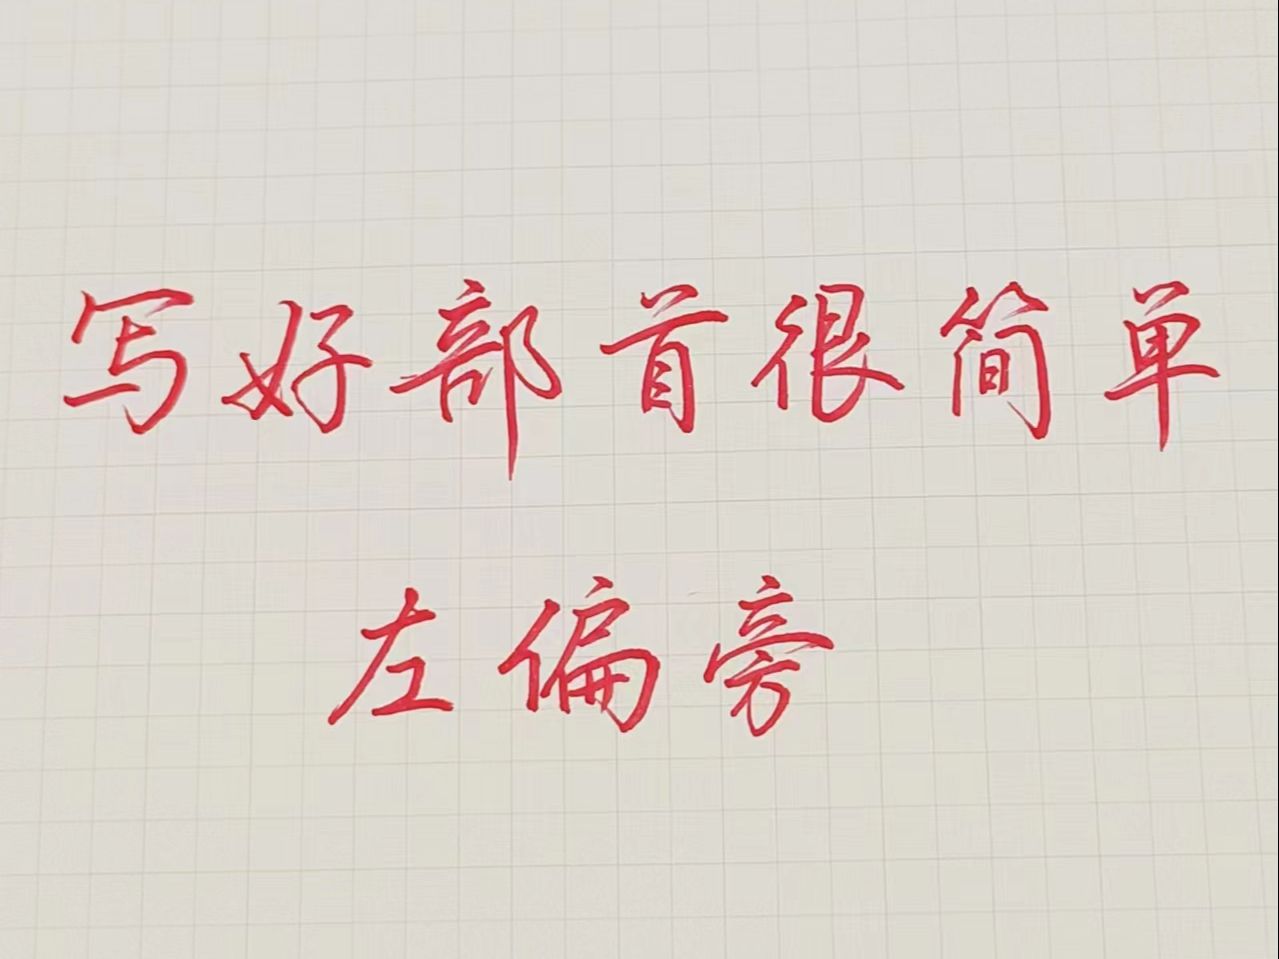 写好部首很简单
左偏旁